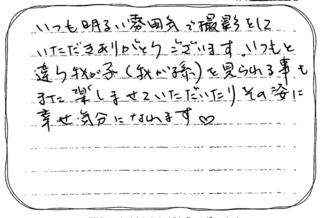 いつも明るい雰囲気で撮影をして
いただきありがとうございます。いつもと
違う我が子(我が孫)を見られる事も
また楽しませていただいたり その姿に
幸せ気分になれます♡